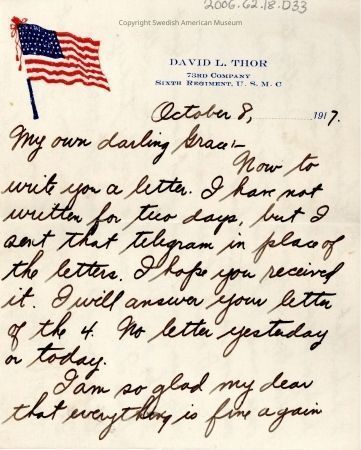 2006.62.18.D33
Copyright Swedish American Museum
DAVID L. THOR
73RD COMPANY
SIXTH REGIMENT, U. S. M. C
October 8, 1917.
My own darling Grace:-
Now to
write you a letter. I have not
written for two days, but I
sent that telegram in place of
the letters. I hope you received
it. I will answer your letter
of the 4. No letter yesterday
or today.
I am so glad my dear
that everything is fine again